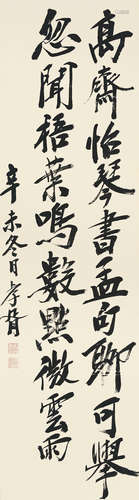 高齋怡琴書孟句聊可舉
忽聞梧葉鳴數點微雲雨
辛未冬日孝胥